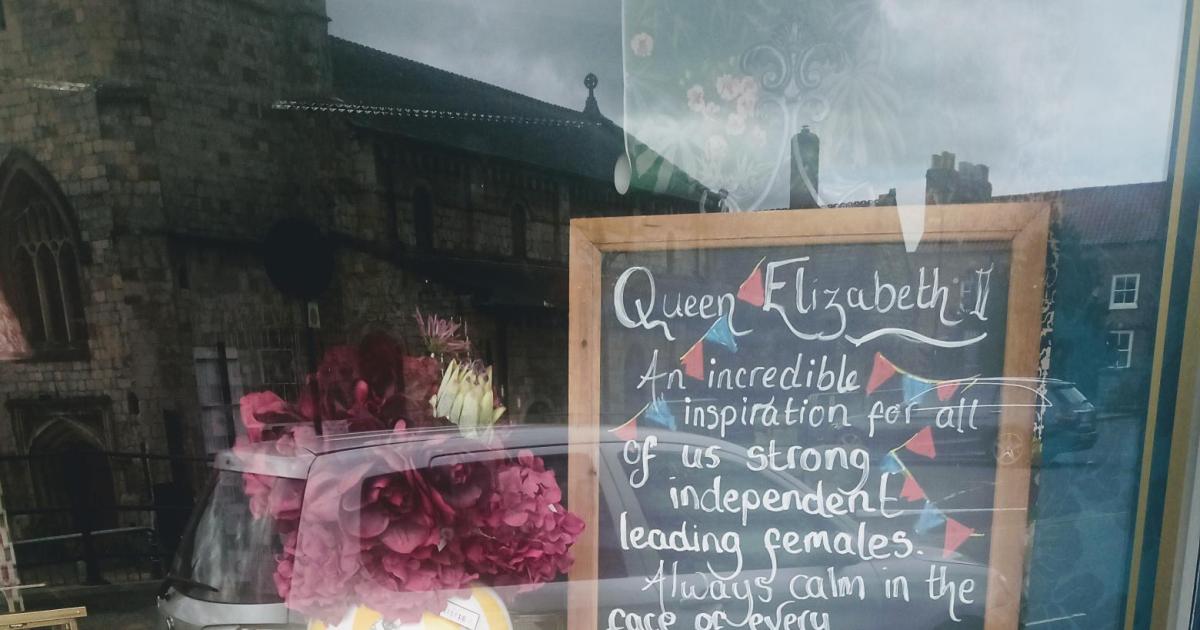 Queen Elizabeth II
An incredible
inspiration for all
of us strong
independent
leading females.
Always calm in the
face of every